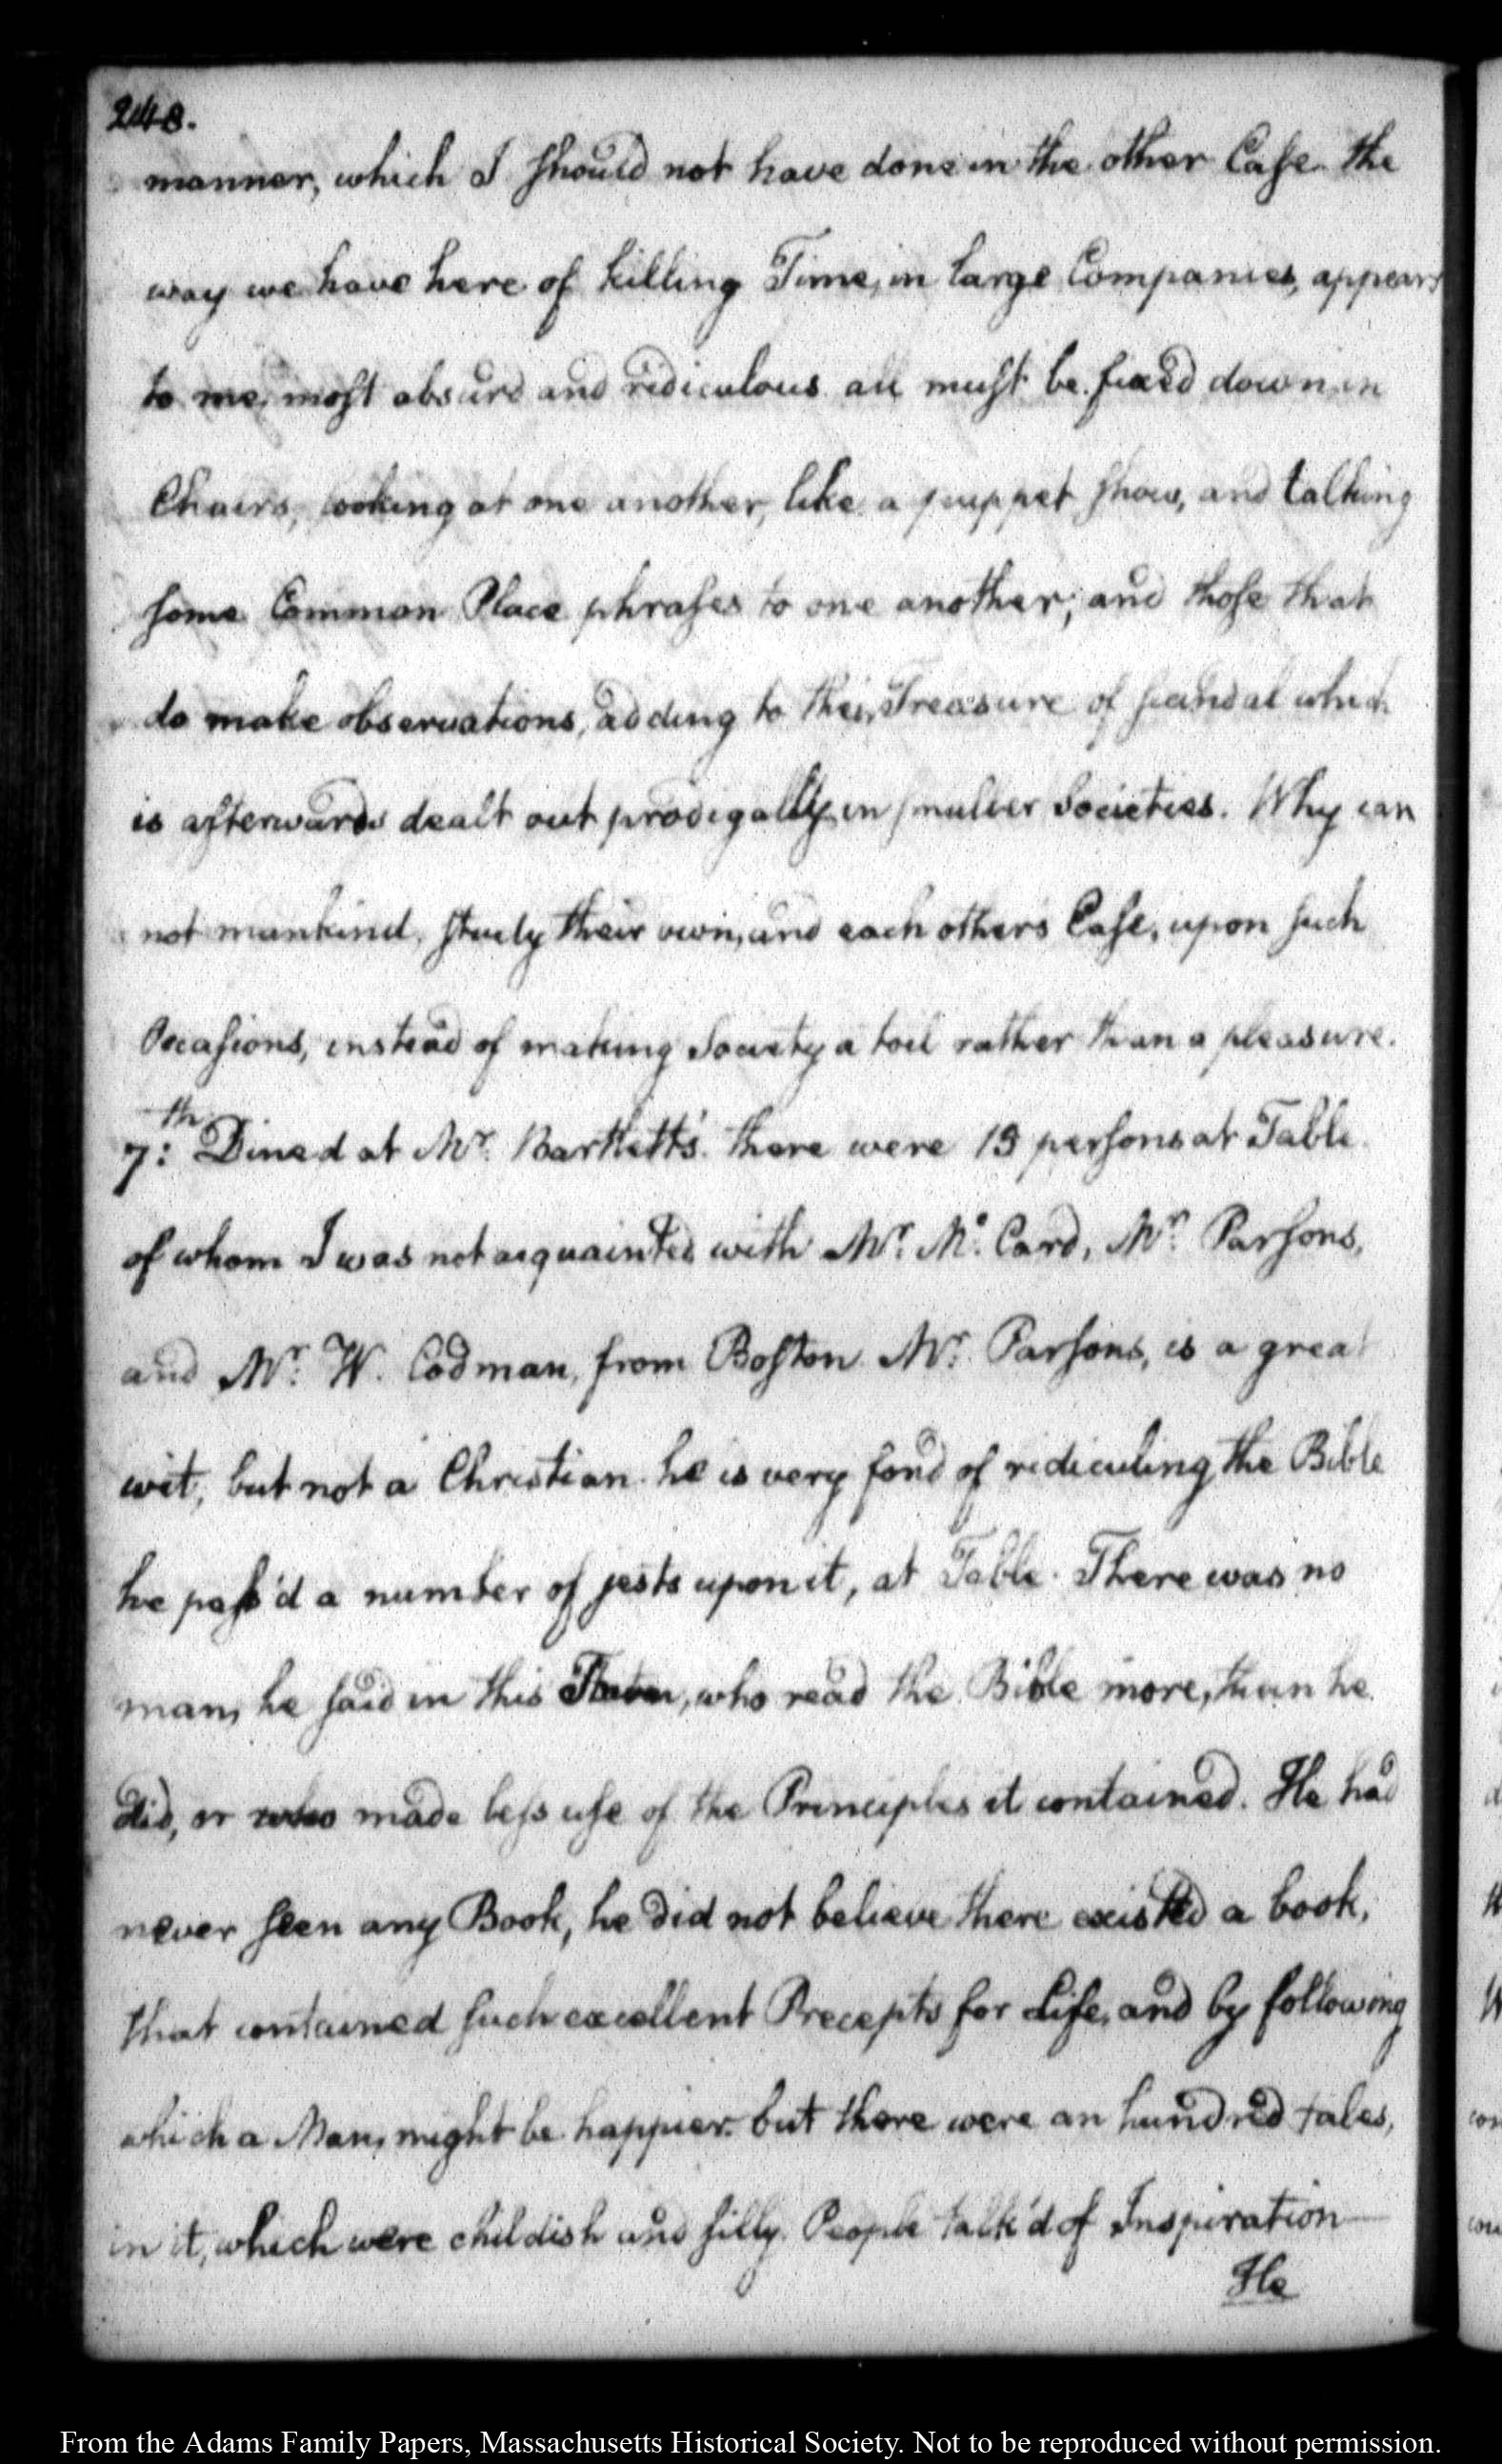 248.
manner, which I should not have done in the other Case. the
way we have here of killing Time, in large Companies, appears
to me, most absurd and ridiculous. all must be fixed down in
Chairs, looking at one another, like a puppet show, and talking
some Common Place phrases to one another; and those that
do make observations, adding to their Treasure of scandal which
is afterwards dealt out prodigally, in smaller Societies. Why can
not mankind, study their own, and each others Ease, upon such
Occasions, instead of making Society a toil rather than a pleasure.
7th: Dined at Mr. Bartlett's. there were 13 persons at Table
of whom I was not acquainted with Mr. Mc. Card, Mr. Parsons,
and Mr. W. Codman, from Boston. Mr. Parsons, is a great
wit, but not a Christian. he is very fond of ridiculing the Bible
he pass'd a number of jests upon it, at Table. There was no
man, he said in this Town, who read the Bible more, than he
did, or who made less use of the Principles it contained. He had
never seen any Book, he did not believe there existed a book,
that contained such excellent Precepts for Life, and by following
which a Man, might be happier. but there were an hundred tales,
in it, which were childish and silly. People talk'd of Inspiration
He
From the Adams Family Papers, Massachusetts Historical Society. Not to be reproduced without permission.